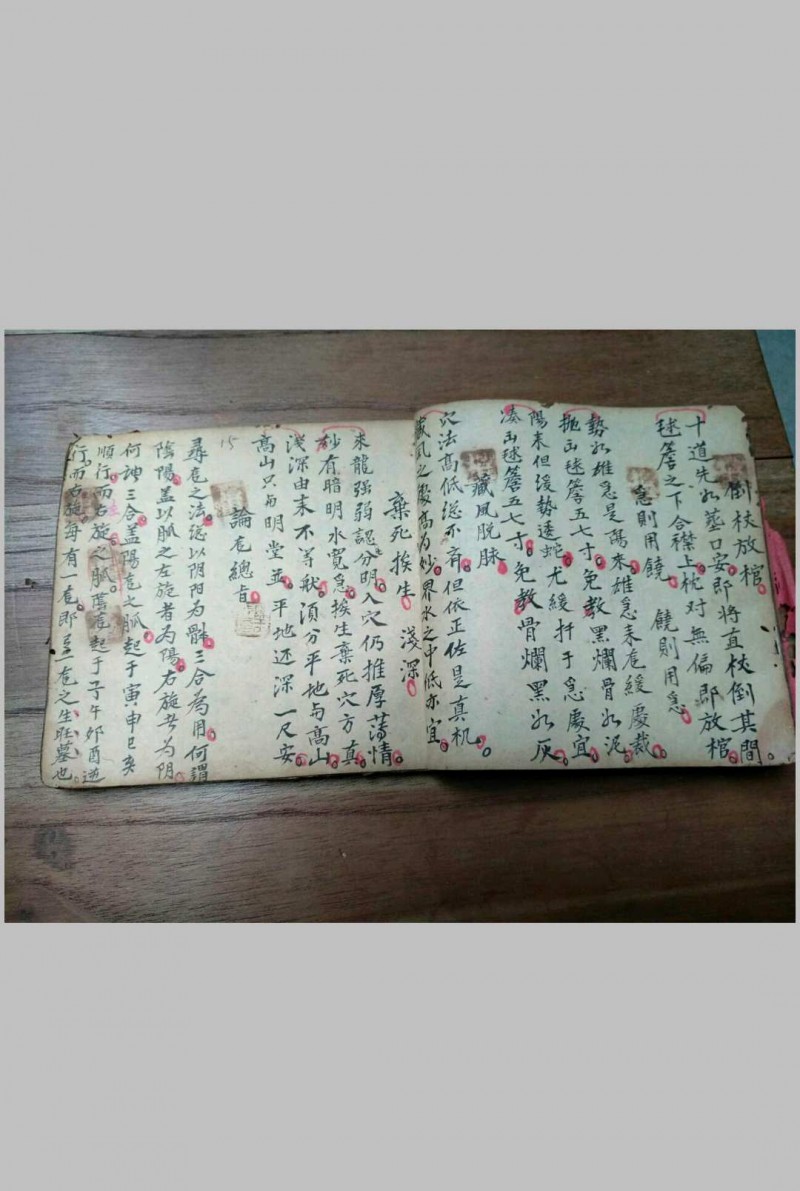 倒杖放棺。
十道先水墓口安。即將直杖倒其間
毬簷之下合襟上。枕对無偏即放棺。
急則用饒 饒則用急。
勢如雄急是陽來。雄急来龙緩處裁
抛出毬簷五七寸。免教黑爛骨如泥
陽来但緩勢逶蛇。尤緩扦于急處宜。
凑出毬簷五七寸。免教骨爛黑如灰。
藏風脱脉
穴法高低总不齐。但依正佐是真机。
藏風之處高為妙。界水之中低亦宜。
棄死挨生 淺深
来龍强弱認分明。入穴仍推厚薄情。
砂有暗明水寬急。挨生棄死穴方真
淺深由来不等般。須分平地与高山。
高山只与明堂並。平地还深一尺安。
15
論龙總旨
尋龙之法。总以阴阳为體。三合為用。何謂
陰陽。盖以脈之左旋者为陽。右旋者为阴。
何謂三合。盖陽龙之脈。起于寅申巳亥
順行而右旋之脈。陰龙起于子午卯酉逆
行。而右旋每有一龙。即呈一龙之生旺墓也。